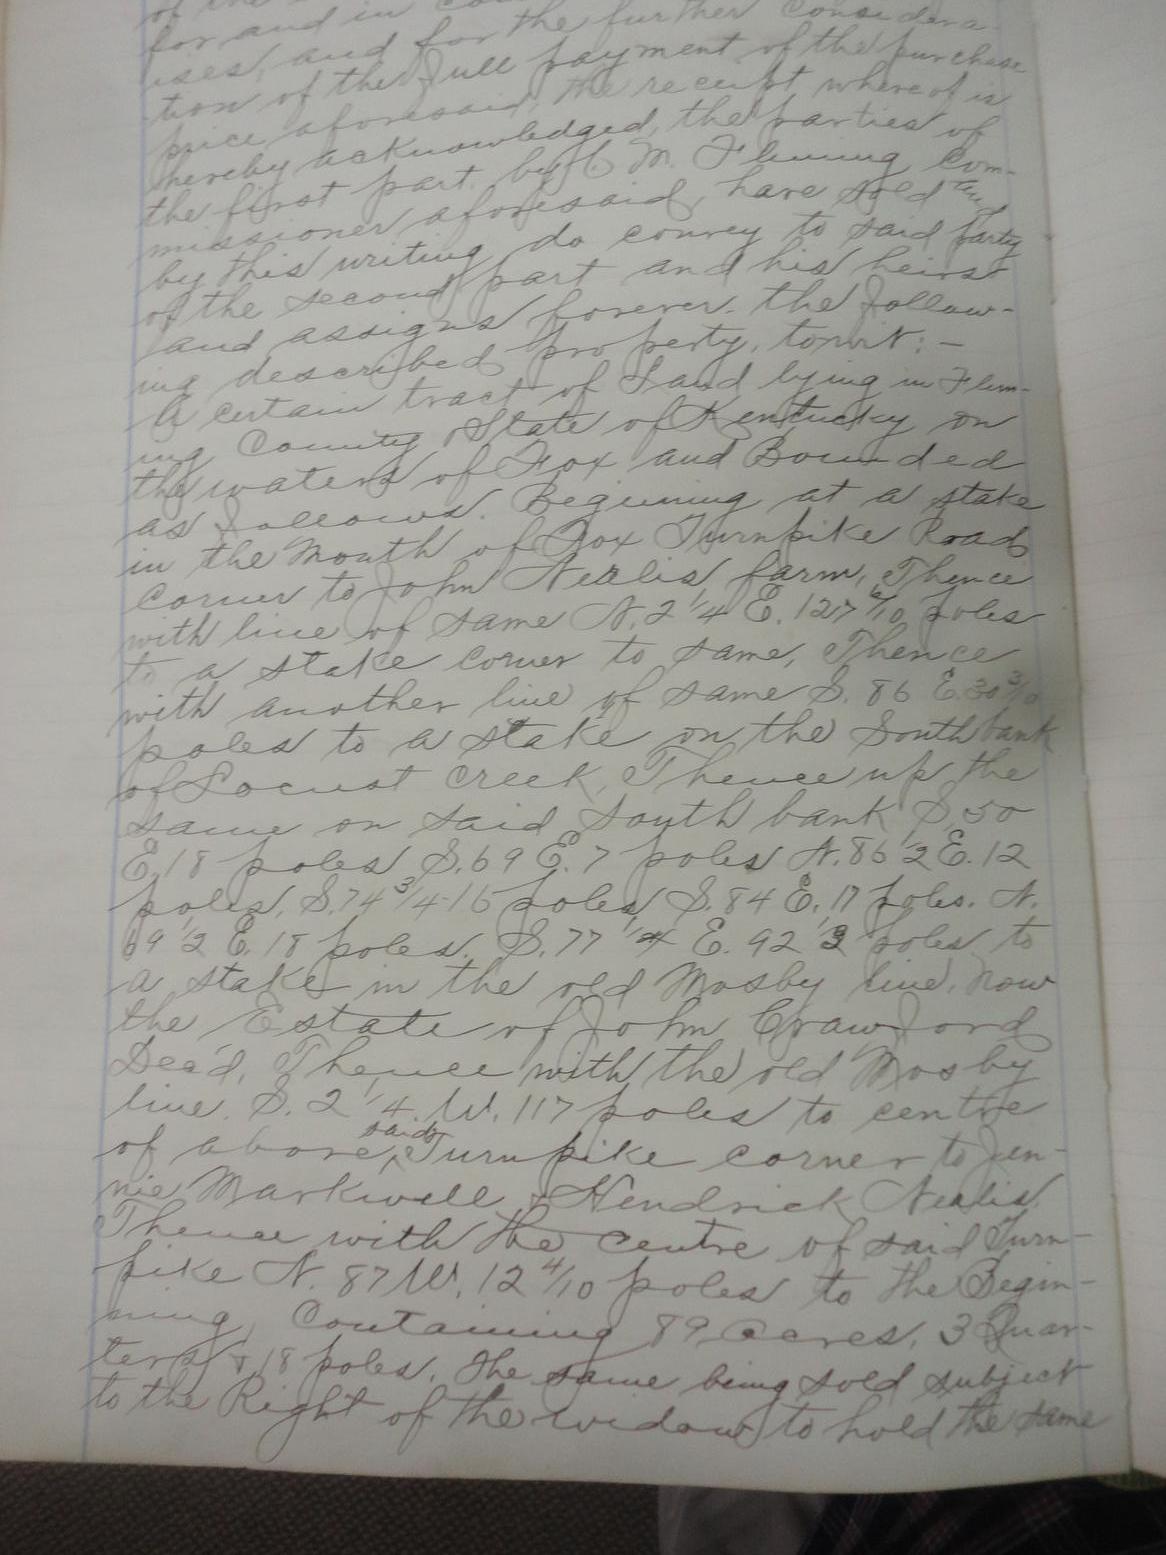 of the
for and in
uses, and for the further considera-
tion of the full payment of the purchase
price aforesaid, the receipt whereof is
hereby acknowledged, the parties of
the first part by M. Fleming, Com-
missioner aforesaid, have sold and
by this writing do convey to said party
of the second part and his heirs
and assigns forever. the follow-
ing described property, towit:-
A certain tract of Land lying in Flem-
ing County State of Kentucky on
the waters of Fox and Bounded
as follows. Beginning at a stake
in the Mouth of Fox Turnpike Road
corner to John Nealis farm, Thence
with line of same N. 2 1/4 E. 127 6/10 poles
to a stake corner to same, Thence
with another line of same S. 86 E. 30 3/10
poles to a stake on the South bank
of Locust Creek, Thence up the
same on said South bank S. 50
E. 18 poles S. 69 E. 7 poles N. 86 1/2 E. 12
poles, S. 74 3/4 16 poles S. 84 E. 17 poles. N.
69 1/2 E. 18 poles. S. 77 1/4 E. 92 poles to
a stake in the old Mosby line, now
the Estate of John Crawford
Dea'd, Thence with the old Mosby
line S. 2 1/4 W. 117 poles to centre
of above said Turnpike corner to Jen-
nie Markwell & Hendrick Nealis.
Thence with the centre of said Turn-
pike N. 87 W. 12 4/10 poles to the Begin-
ning, Containing 89 acres, 3 Quar-
ters & 18 poles. The same being sold subject
to the Right of the widow to hold the same